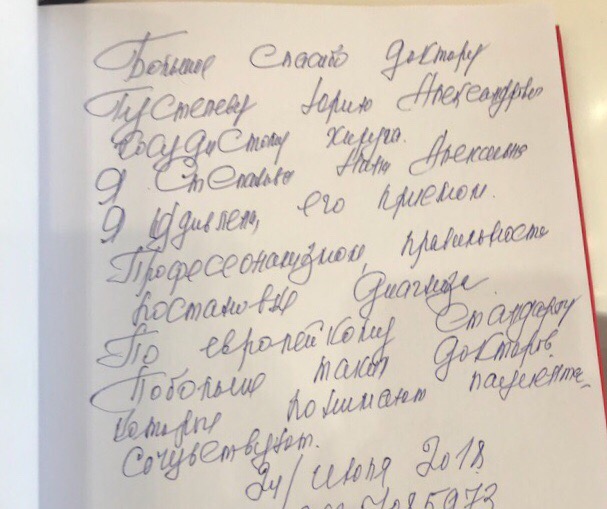 Большое спасибо доктору
Густелеву Юрию Александрович
сосудистому хирурга.
Я Степанова Нина Алексеевна
Я удивлена, его приемом.
Професеонализмом, правильности
постановке диагноза.
По европейкому стандарту
Побольше таких докторов
которые понимают пациента,
сочувствуют.
24/июля 2018
7085973